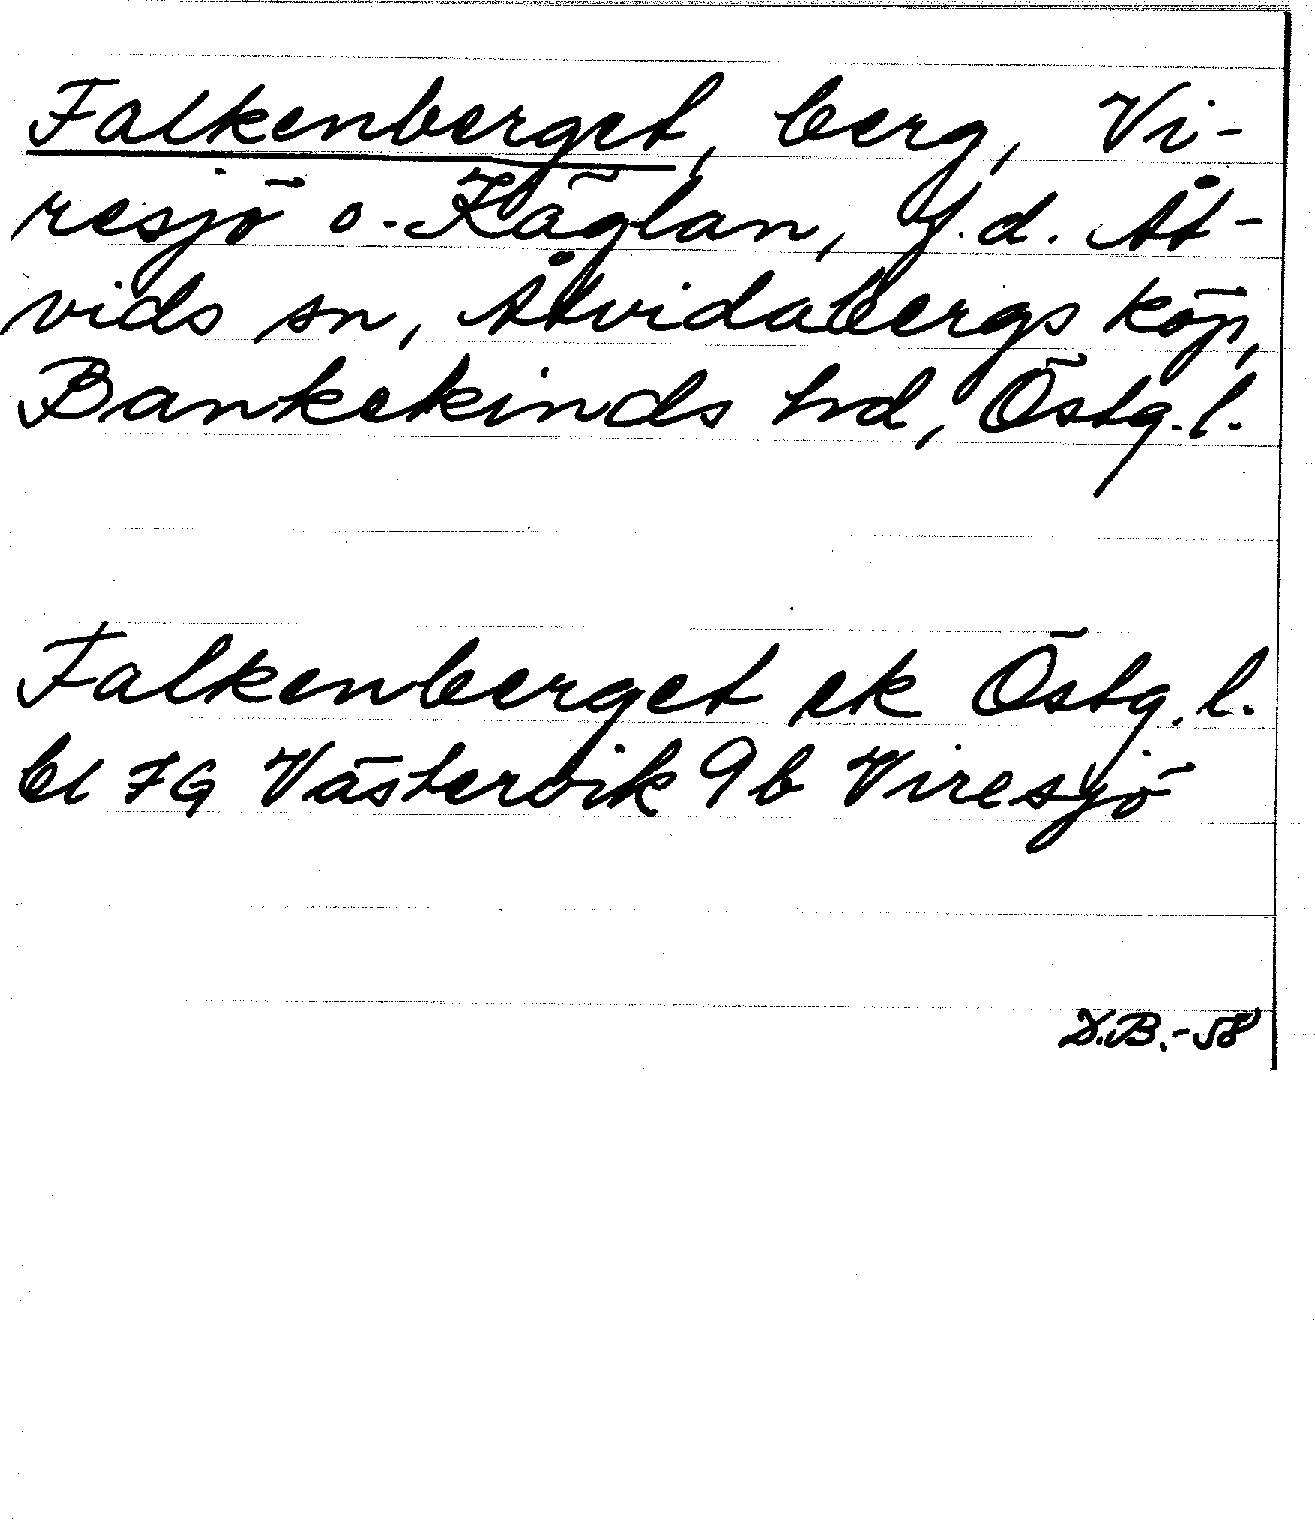 Falkenberget, berg, Vi-
resjö o. Käglan, f.d. Åt-
vids sn, Åtvidabergs köp,
Bankekinds hd, Östg.l.
Falkenberget ek Östg.l.
bl 7G Västervik 9b Viresjö
D.B.-58